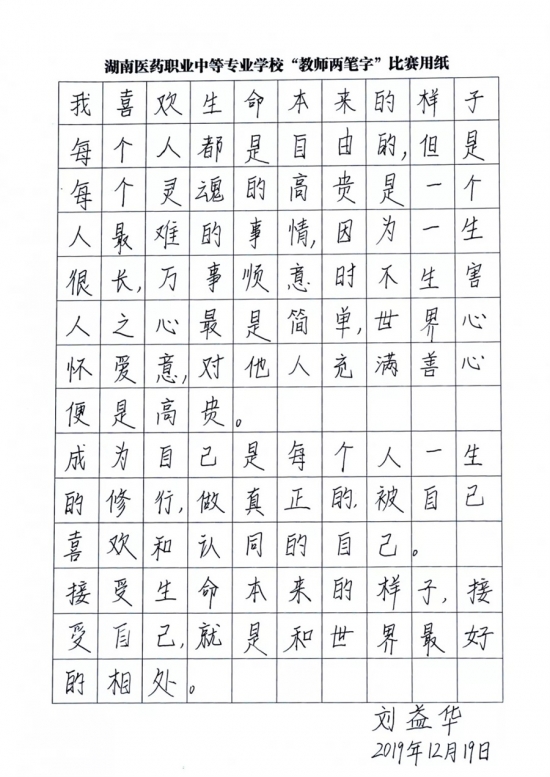 湖南医药职业中等专业学校“教师两笔字”比赛用纸
我喜欢生命本来的样子
每个人都是自由的,但是
每个灵魂的高贵是一个
人最难的事情,因为一生
很长,万事顺意时不生害
人之心最是简单,世界心
怀爱意,对他人充满善心
便是高贵。
成为自己是每个人一生
的修行,做真正的.被自己
喜欢和认同的自己。
接受生命本来的样子,接
受自己,就是和世界最好
的相处。
刘益华
2019年12月19日